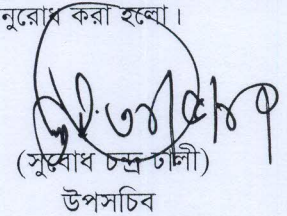 নুরোধ করা হলো।
(সুবোধ চন্দ্র ঢালী)
উপসচিব